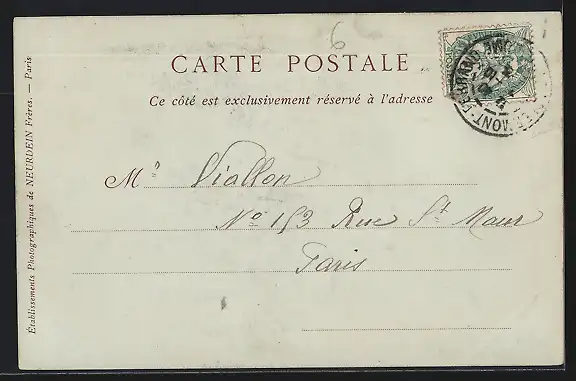 6
CARTE POSTALE
Ce côté est exclusivement réservé à l'adresse
Mr Viallon
No 153 Rue St Maur
Paris
Établissements Photographiques de NEURDEIN Frères. — Paris
CLERMONT-FERRAND